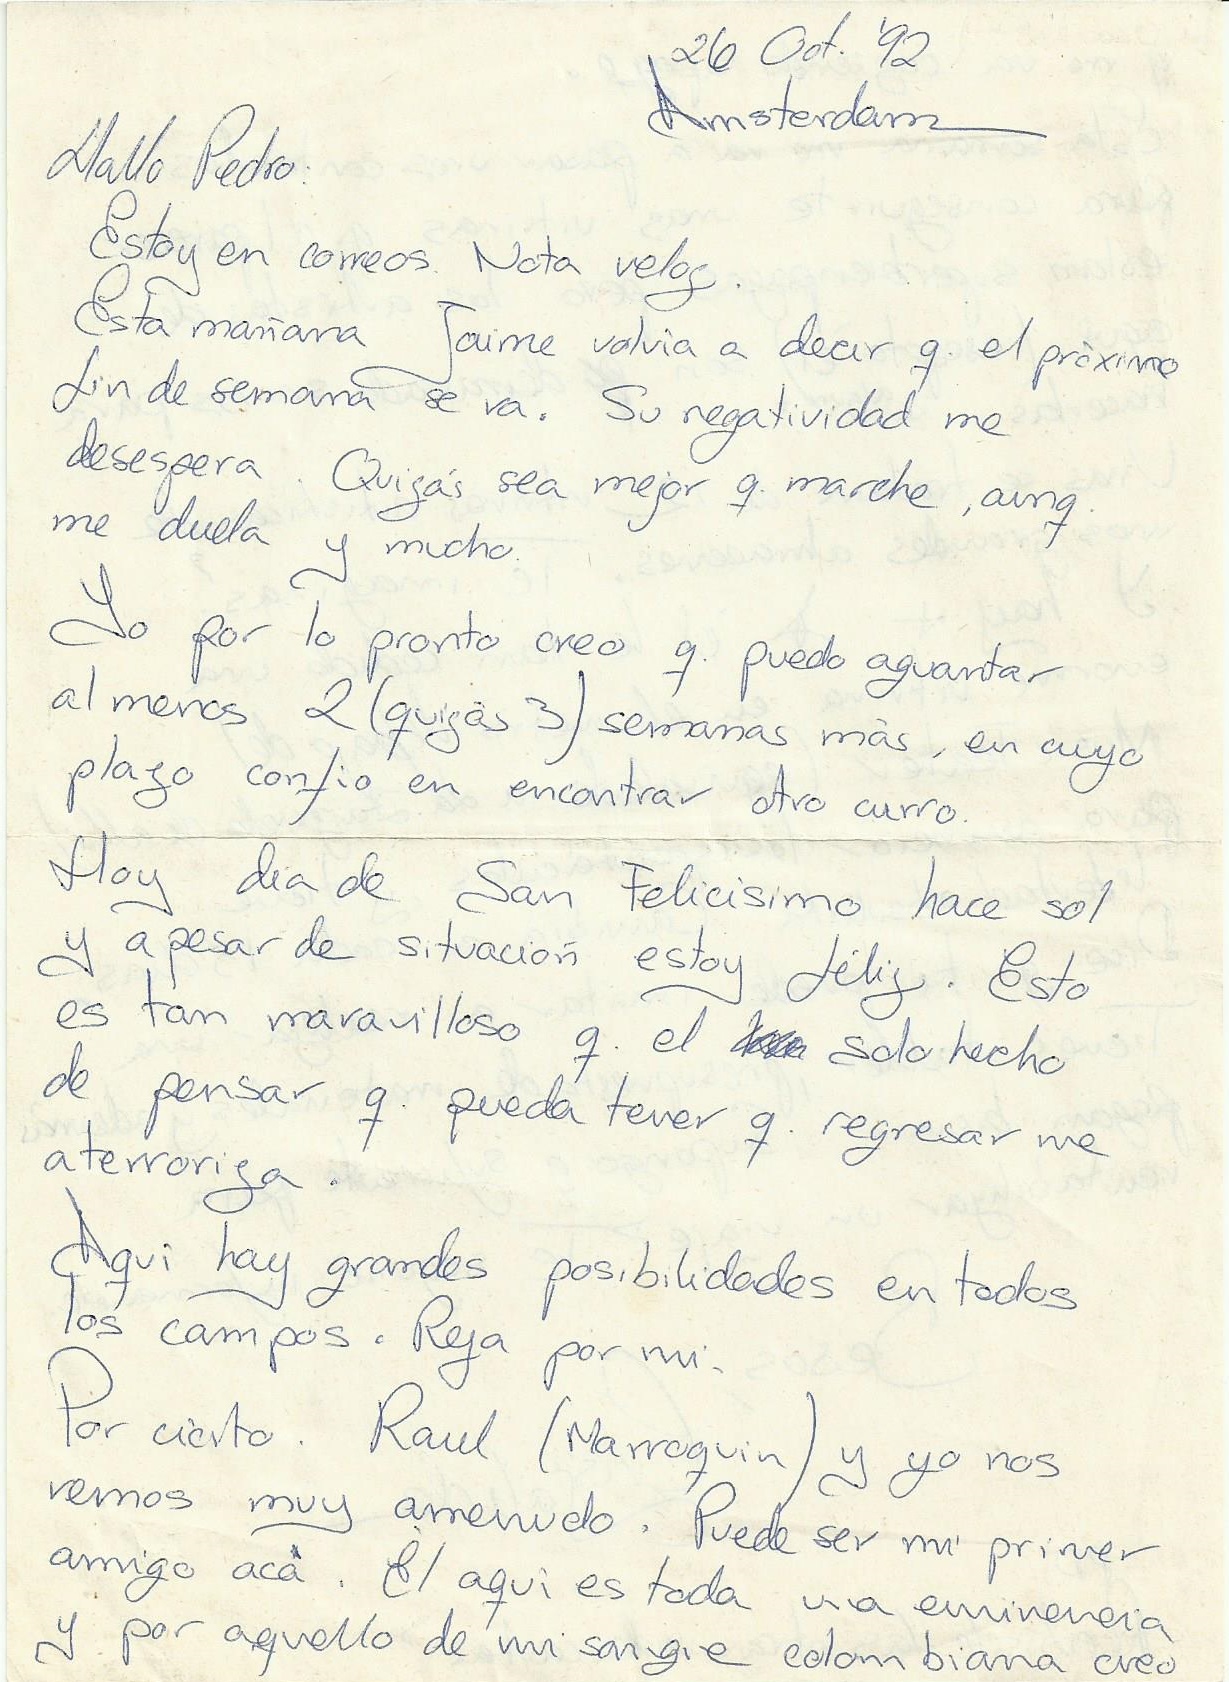 26 Oct. '92
Amsterdam
Hallo Pedro:
Estoy en correos. Nota veloz.
Esta mañana Jaime volvia a decir q. el próximo
fin de semana se va. Su negatividad me
desespera. Quizás sea mejor q. marche, aunq.
me duela y mucho.
Yo por lo pronto creo q. puedo aguantar
al menos 2 (quizás 3) semanas más, en cuyo
plazo confio en encontrar otro curro.
Hoy dia de San Felicisimo hace sol
y apesar de situación estoy féliz. Esto
es tan maravilloso q. el solo hecho
de pensar q. pueda tener q. regresar me
aterroriza.
Aqui hay grandes posibilidades en todos
los campos. Reza por mi.
Por cierto. Raul (Marroquin) y yo nos
vemos muy amenudo. Puede ser mi primer
amigo acá. Él aqui es toda una eminencia
y por aquello de mi sangre colombiana creo